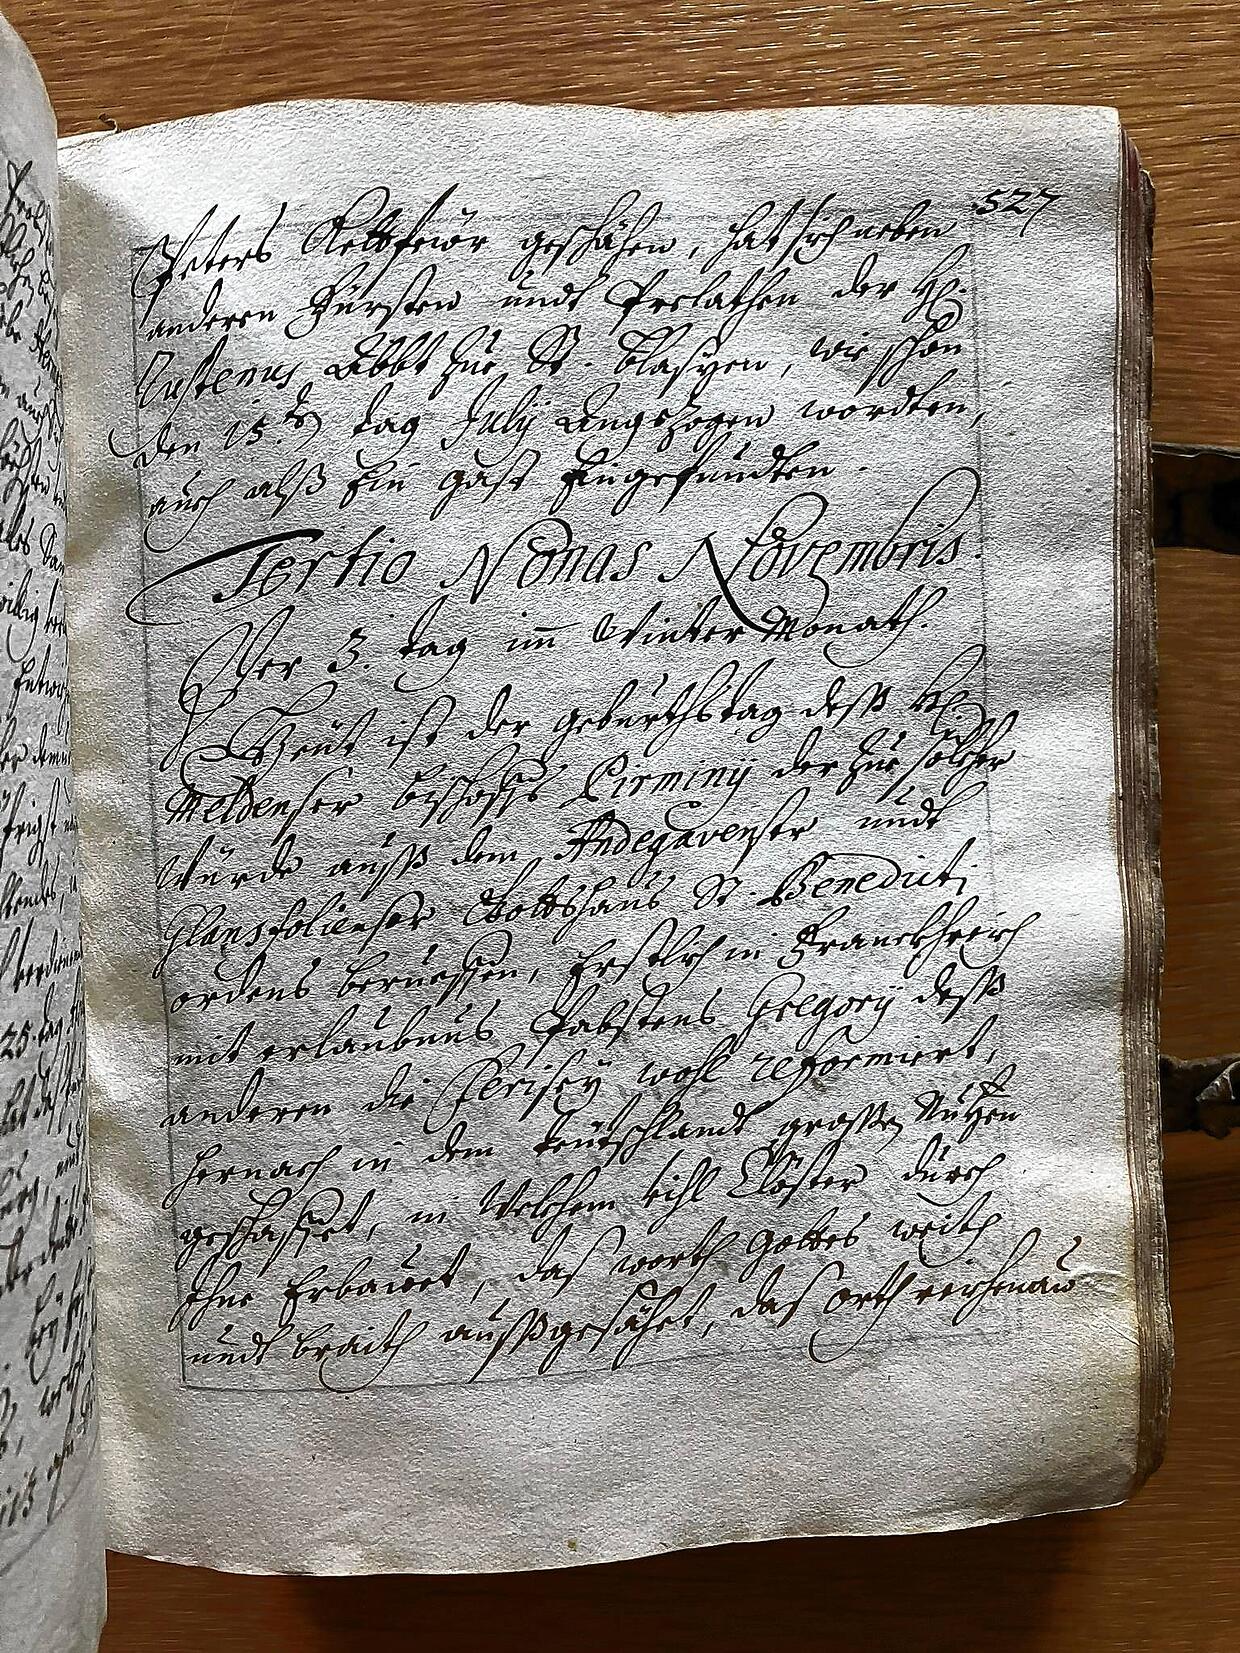 527
Peters Kettfeür geschähen, hat sich neben
anderen Fürsten undt Prelathen der Hl.
Justenus Abbt zue St. Blasyen, wie schon
den 15.ten tag July angezogen wordten,
auch alß Ein Gast Eingefundten.
Tertio Nonas Novembris.
Der 3. tag im Winter Monath.
Heüt ist der geburthstag deß Hl.
Meldenser bischoffs Pirminij der zue solcher
Würde auß dem Andegavenser undt
Glansfolienser Gottshaus St. Benedicti
ordens berueffen, Erstlich in Franckhreich
mit erlaubnus Pabstens Gregorij deß
anderen die Clerisey wohl reformiert,
hernach in dem teütschlandt großen Nutzen
geschaffet, in Welchem vihl Clöster durch
Ihne Erbawet, das worth Gottes weith
undt braith außgesähet, das orth reichenaw